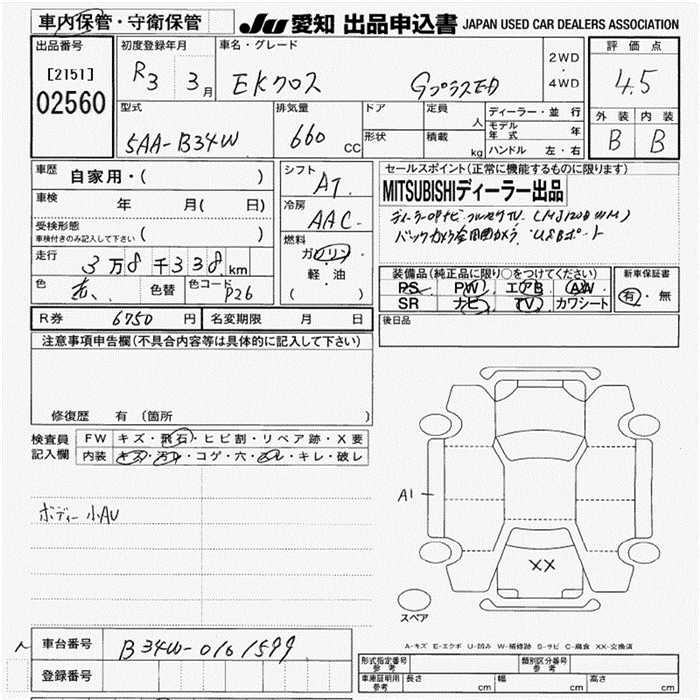 車内保管・守衛保管
JU 愛知 出品申込書 JAPAN USED CAR DEALERS ASSOCIATION
出品番号
[2151]
02560
初度登録年月
R3 3月
車名・グレード
EKクロス GプラスED
2WD
・
4WD
評価点
4.5
外装 内装
B B
型式
5AA-B34W
排気量
660 CC
ドア
形状
定員 人
積載 kg
ディーラー・並行
モデル年式 年
ハンドル 左・右
車歴
自家用・( )
車検 年 月( 日)
受検形態
車検付きのみ記入して下さい ( )
走行
3万8千338km
色 赤、 色替 色コード P26
シフト
AT
冷房
AAC
燃料
ガソリン
軽・油
( )
セールスポイント(正常に機能するものに限ります)
MITSUBISHIディーラー出品
ディーラーOPナビ フルセグTV
バックカメラ全周囲カメラ USBポート
装備品(純正品に限り○をつけてください)
PS PW エアB AW
SR ナビ TV カワシート
新車保証書
有・無
R券 6750 円 名変期限 月 日
後日品
注意事項申告欄(不具合内容等は具体的に記入して下さい)
修復歴 有 (箇所 )
検査員
記入欄
FW キズ・飛石・ヒビ割・リペア跡・X要
内装 キズ・汚レ・コゲ・穴・スレ・キレ・破レ
ボディー小AU
A1
XX
スペア
A-キズ E-エクボ U-凹み W-補修跡 S-サビ C-腐食 XX-交換済
車台番号 B34W-0101599
登録番号
型式指定番号
参考
類別区分番号
参考
車庫証明用
参考
長さ cm 幅 cm 高さ cm